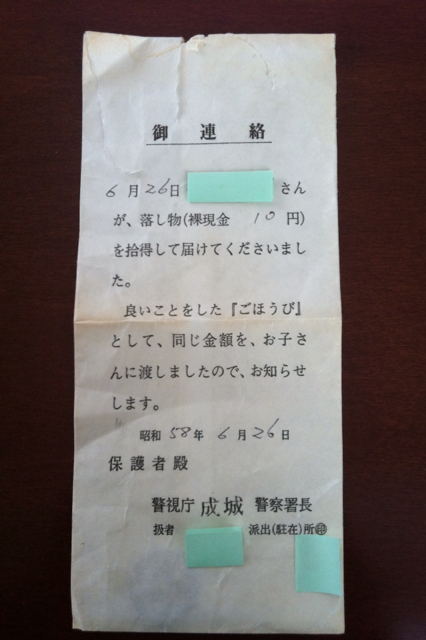 御連絡
6月26日 さん
が、落し物(裸現金 10円)
を拾得して届けてくださいまし
た。
良いことをした『ごほうび』
として、同じ金額を、お子さ
んに渡しましたので、お知らせ
します。
昭和58年6月26日
保護者殿
警視庁 成城 警察署長
扱者 派出(駐在)所㊞